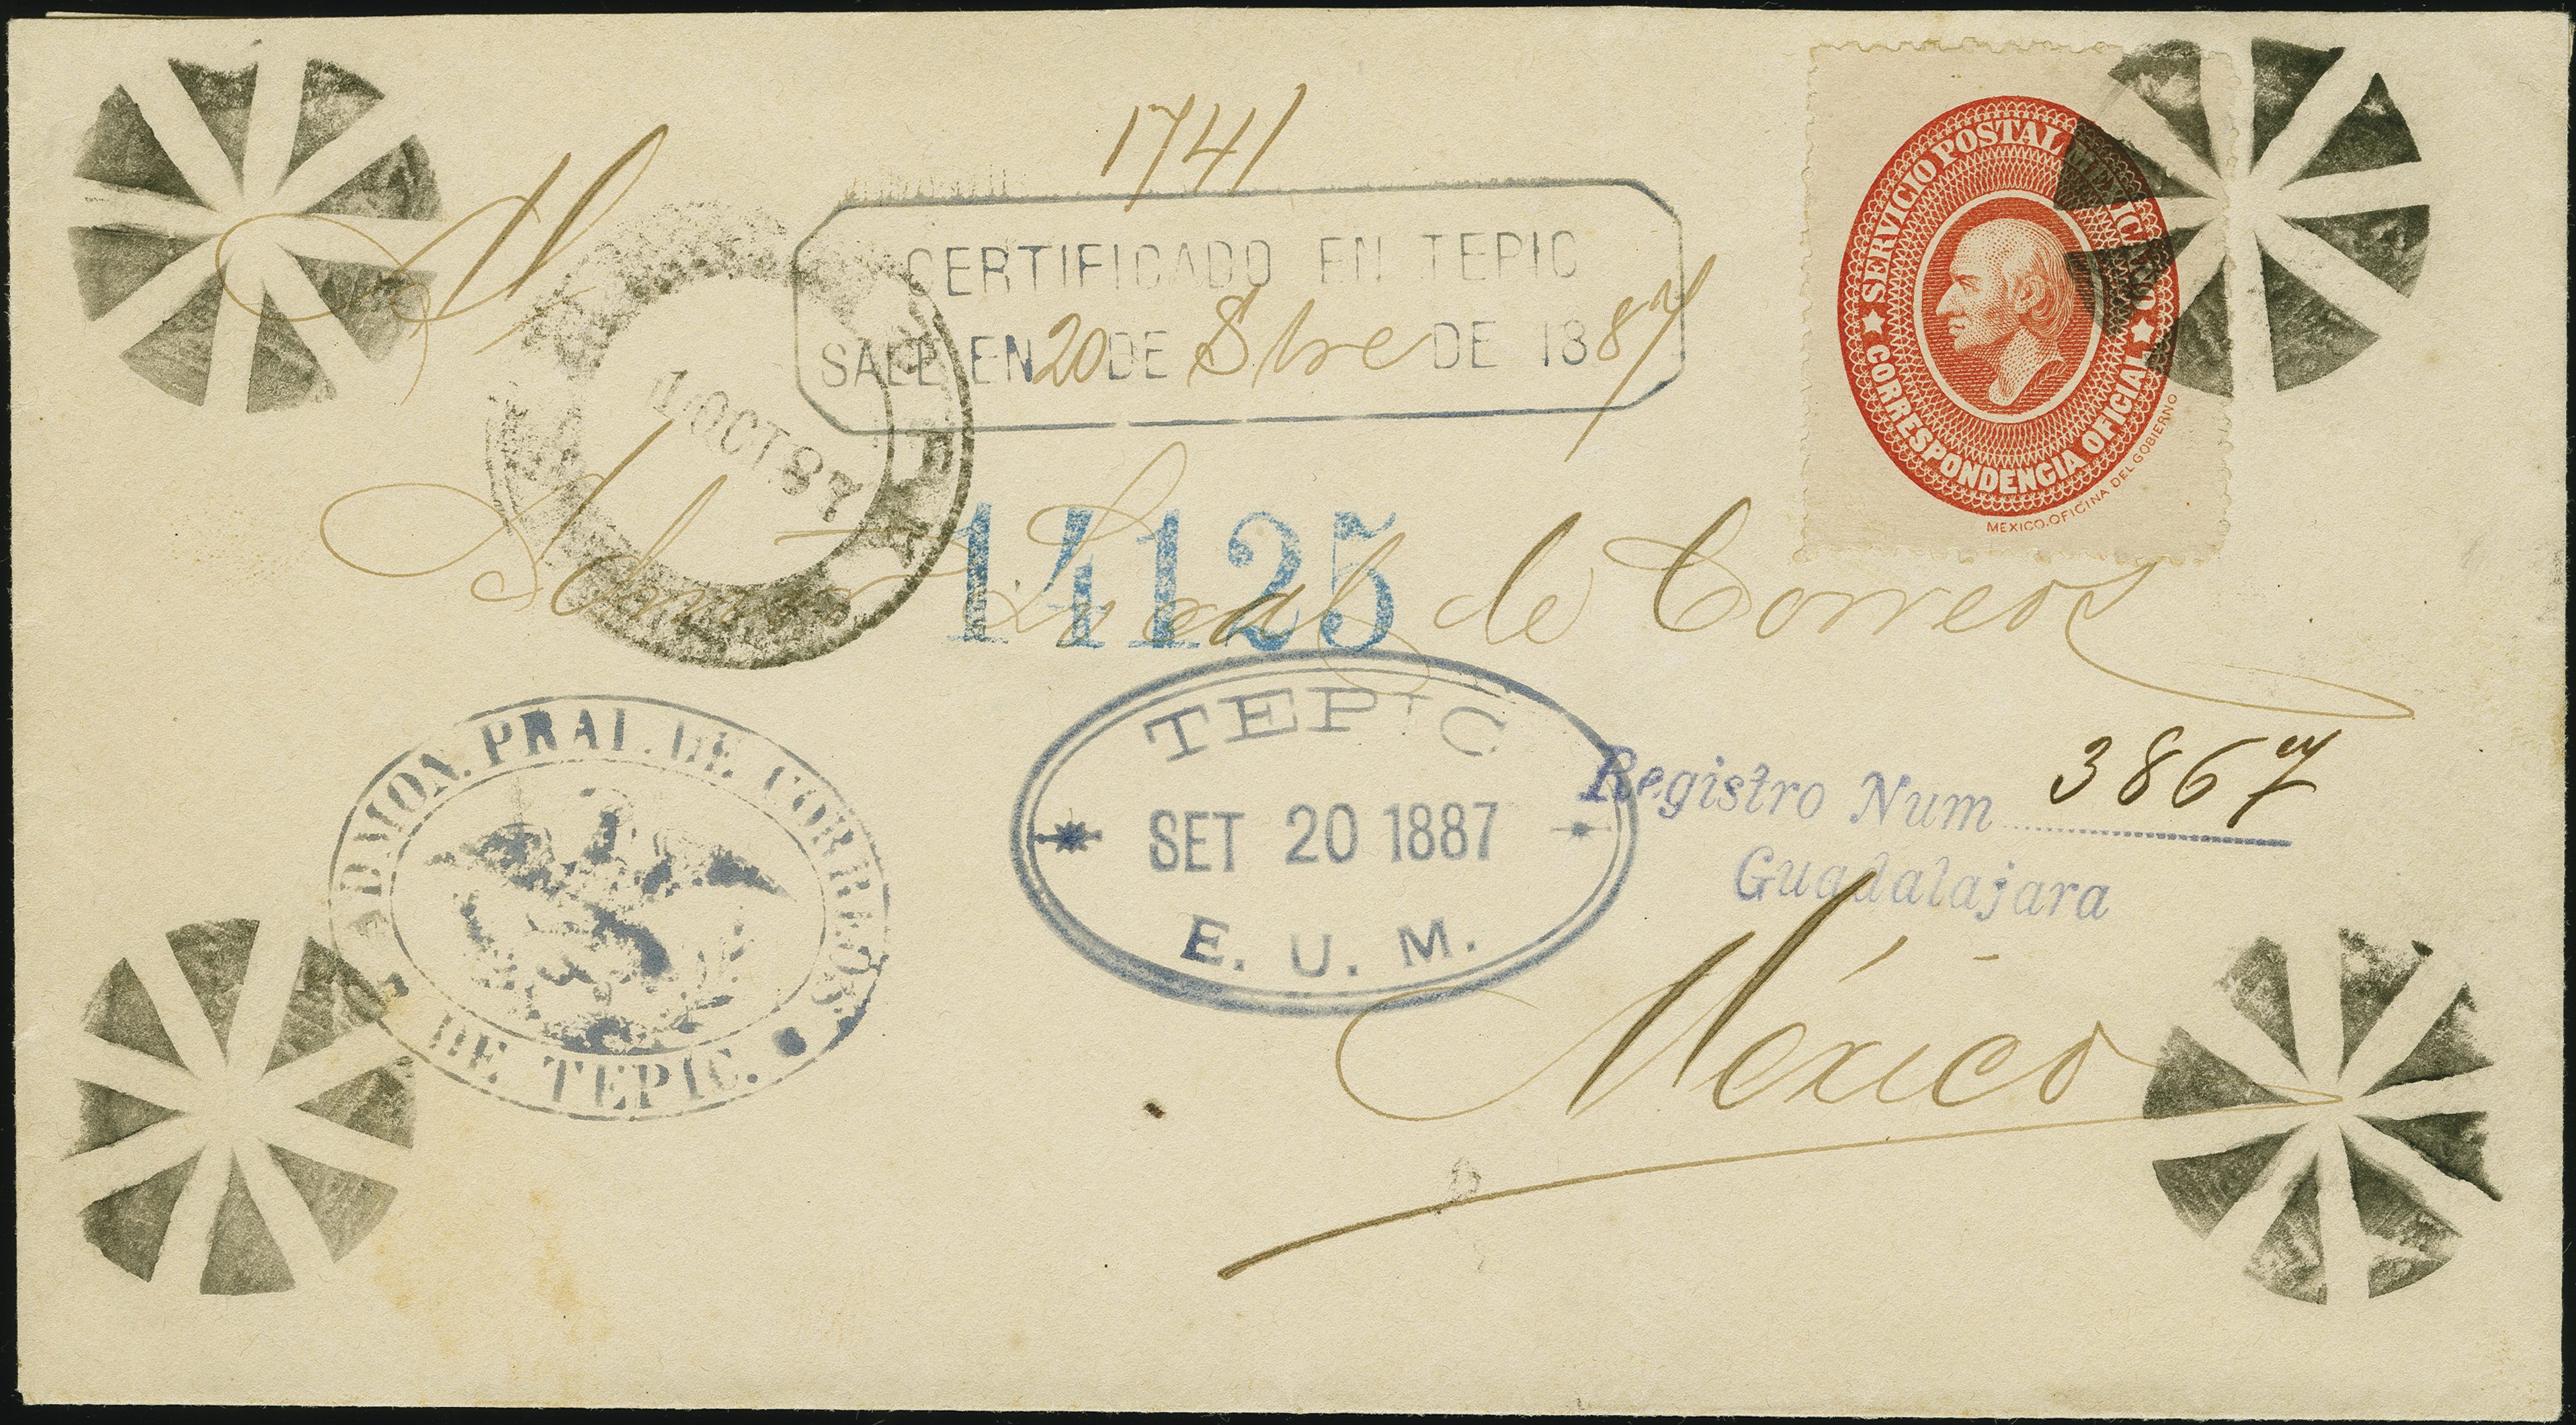 1741
Al
CERTIFICADO EN TEPIC
SALE EN 20 DE Sbre DE 1887
SERVICIO POSTAL MEXICANO
CORRESPONDENCIA OFICIAL
MEXICO. OFICINA DEL GOBIERNO
OCT 87
14125
Local de Correos
TEPIC
SET 20 1887
E. U. M.
Registro Num 3867
Guadalajara
ADMON. PRAL. DE CORREOS
DE TEPIC.
México